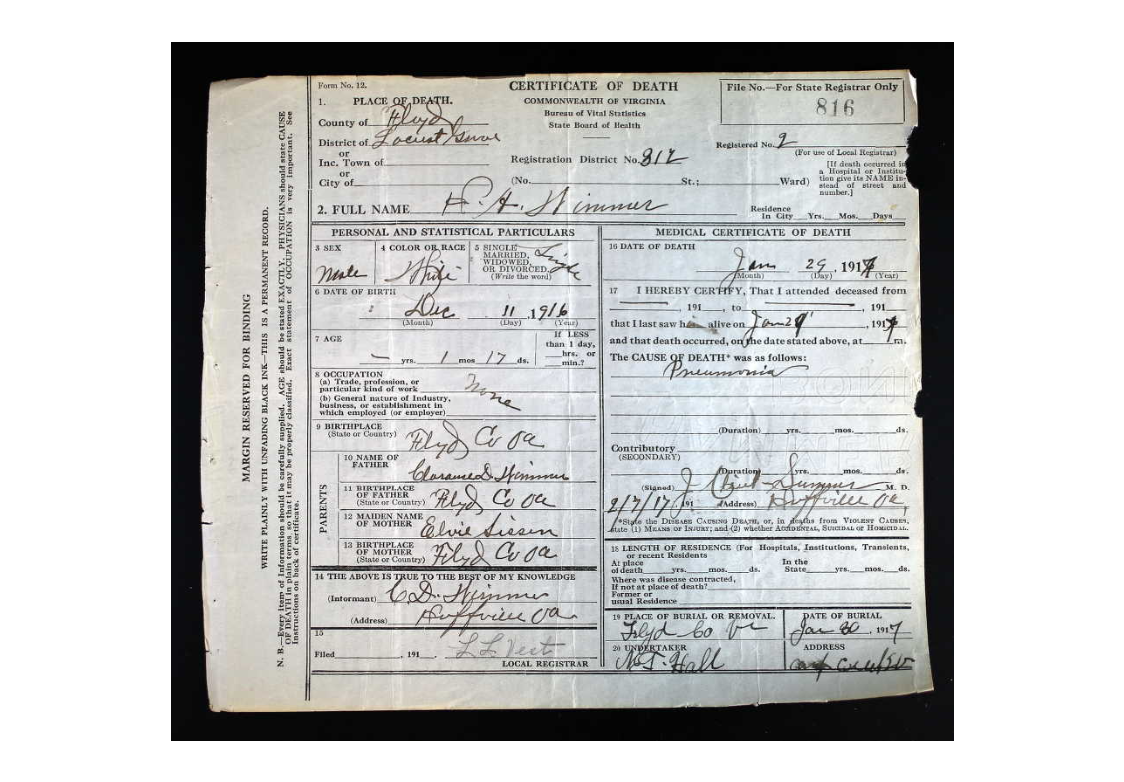 MARGIN RESERVED FOR BINDING
WRITE PLAINLY WITH UNFADING BLACK INK—THIS IS A PERMANENT RECORD.
N. B.—Every item of information should be carefully supplied. AGE should be stated EXACTLY. PHYSICIANS should state CAUSE
OF DEATH in plain terms, so that it may be properly classified. Exact statement of OCCUPATION is very important. See
instructions on back of certificate.
Form No. 12.
CERTIFICATE OF DEATH
COMMONWEALTH OF VIRGINIA
Bureau of Vital Statistics
State Board of Health
File No.—For State Registrar Only
816
1. PLACE OF DEATH.
County of Floyd
District of Locust Grove
or
Inc. Town of
or
City of
Registration District No. 812
Registered No. 2
(For use of Local Registrar)
(No. St.; Ward)
[If death occurred in
a Hospital or Institu-
tion give its NAME in-
stead of street and
number.]
2. FULL NAME H. Wimmer
Residence
In City Yrs. Mos. Days
PERSONAL AND STATISTICAL PARTICULARS
3 SEX
Male
4 COLOR OR RACE
White
5 SINGLE
MARRIED,
WIDOWED,
OR DIVORCED.
(Write the word)
Single
6 DATE OF BIRTH
Dec 11, 1916
(Month) (Day) (Year)
7 AGE
— yrs. 1 mos 17 ds.
If LESS
than 1 day,
hrs. or
min.?
8 OCCUPATION
(a) Trade, profession, or
particular kind of work
None
(b) General nature of Industry,
business, or establishment in
which employed (or employer)
9 BIRTHPLACE
(State or Country) Floyd Co Va
PARENTS
10 NAME OF
FATHER
Clarence D. Wimmer
11 BIRTHPLACE
OF FATHER
(State or Country) Floyd Co Va
12 MAIDEN NAME
OF MOTHER Elvie
13 BIRTHPLACE
OF MOTHER
(State or Country) Floyd Co Va
14 THE ABOVE IS TRUE TO THE BEST OF MY KNOWLEDGE
(Informant) C D. Wimmer
(Address) Huffville Va
15
Filed , 191 L L Vest
LOCAL REGISTRAR
MEDICAL CERTIFICATE OF DEATH
16 DATE OF DEATH
Jan 29, 1917
(Month) (Day) (Year)
17 I HEREBY CERTIFY, That I attended deceased from
, 191 , to , 191
that I last saw him alive on Jan , 1917
and that death occurred, on the date stated above, at m.
The CAUSE OF DEATH* was as follows:
Pneumonia
(Duration) yrs. mos. ds.
Contributory
(SECONDARY)
(Duration) yrs. mos. ds.
(Signed) J M. D.
2/7/17, 191 (Address) Huffville Va
*State the DISEASE CAUSING DEATH, or, in deaths from VIOLENT CAUSES,
state (1) MEANS OF INJURY; and (2) whether ACCIDENTAL, SUICIDAL or HOMICIDAL.
18 LENGTH OF RESIDENCE (For Hospitals, Institutions, Transients,
or recent Residents
At place
of death yrs. mos. ds.
In the
State yrs. mos. ds.
Where was disease contracted,
If not at place of death?
Former or
usual Residence
19 PLACE OF BURIAL OR REMOVAL.
Floyd Co Va
DATE OF BURIAL
Jan 30, 1917
20 UNDERTAKER
Hall
ADDRESS